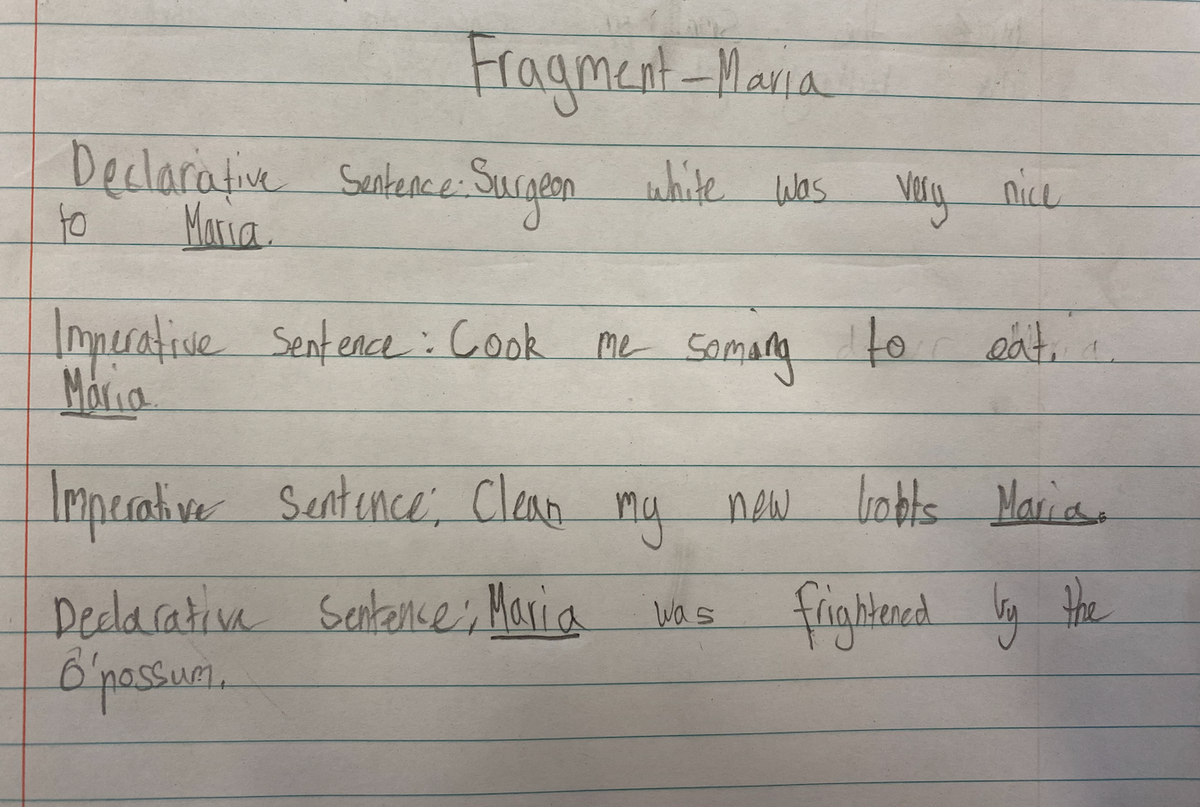 Fragment-Maria
Declarative Sentence: Surgeon white was very nice
to Maria.
Imperative Sentence: Cook me somang to eat.
Maria.
Imperative Sentence; Clean my new bobts Maria.
Declarative Sentence; Maria was frightened by the
O'possum.